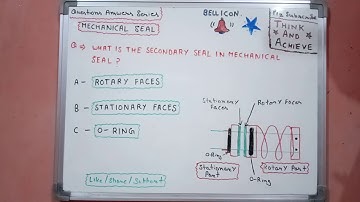 Questions Answers Series
MECHANICAL SEAL
BELLICON
Pls Subscribe
THINK
AND
ACHIEVE
Q⇒ WHAT IS THE SECONDARY SEAL IN MECHANICAL
SEAL ?
A - ROTARY FACES
B - STATIONARY FACES
C - O-RING
Stationary
Faces
Rotary Faces
O-Ring
Stationary
Part
Rotary Part
O-Ring
Like/Share/Subscribe